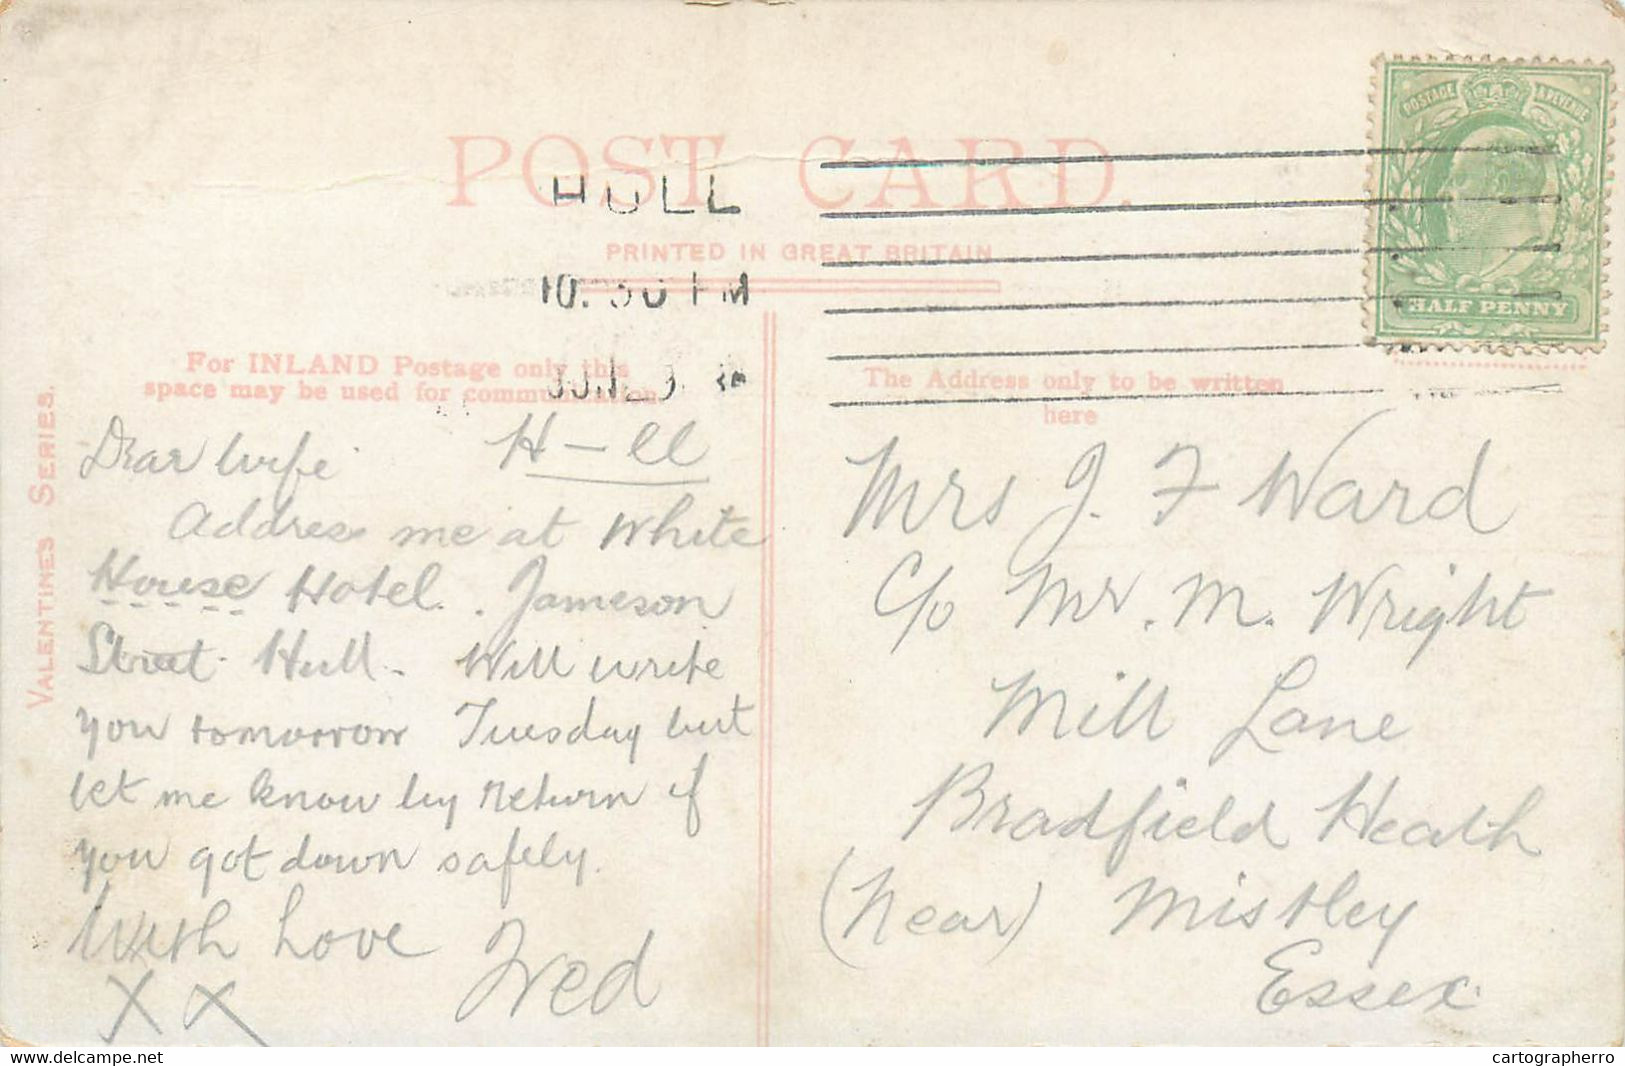 POST CARD.
HULL
PRINTED IN GREAT BRITAIN
For INLAND Postage only this
space may be used for communication.
The Address only to be written
here
POSTAGE & REVENUE
HALF PENNY
VALENTINES SERIES.
H-ll
Dear Wife
Address me at White
House Hotel. . Jameson
Street. Hull. Will write
you tomorrow Tuesday but
let me know by return if
you got down safely.
With Love Fred
X X
Mrs J. F Ward
C/o Mr. M. Wright
Mill Lane
Bradfield Heath
(near) Mistley
Essex.
delcampe.net
cartographerro